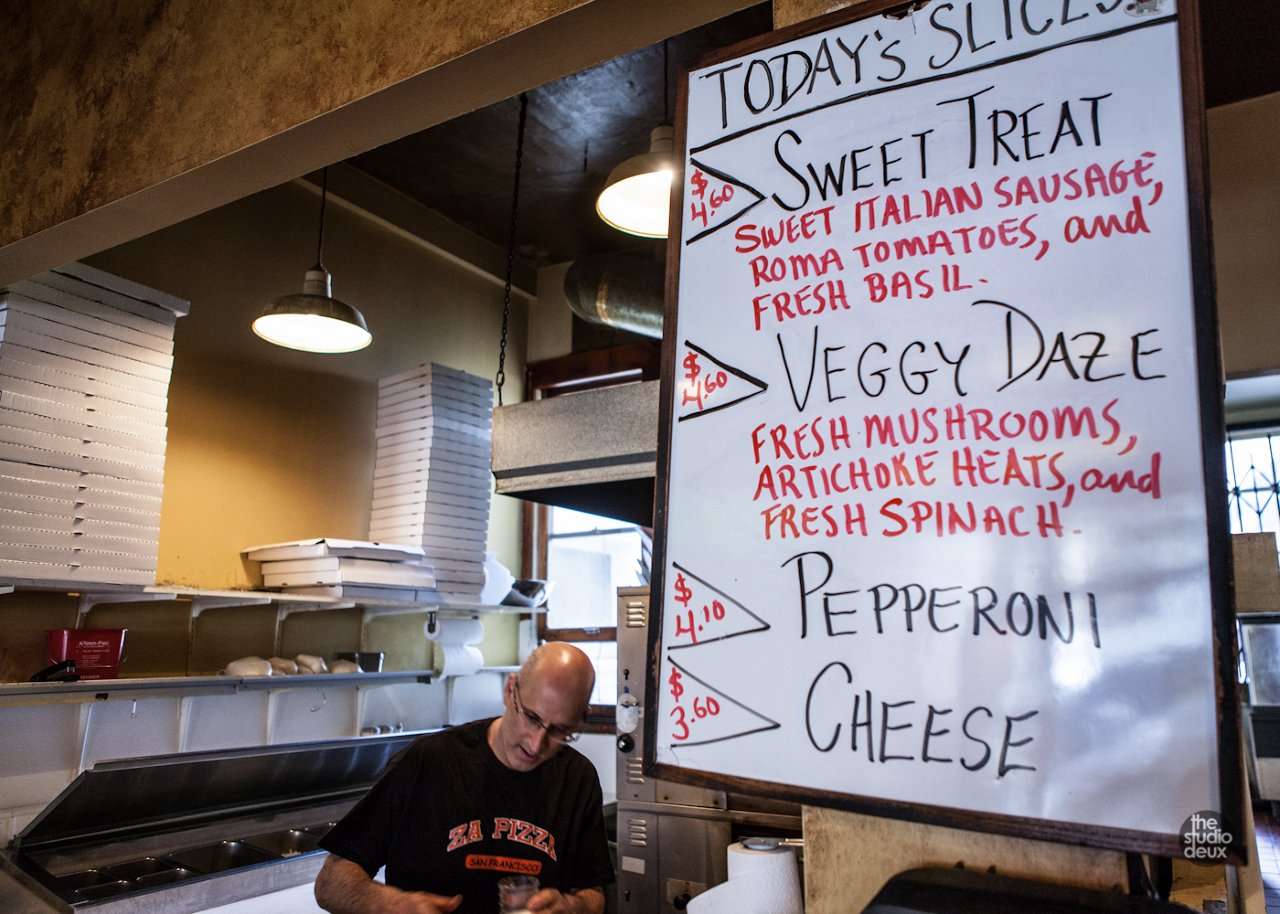 TODAY'S SLICES
SWEET TREAT
$4.60
SWEET ITALIAN SAUSAGE,
ROMA TOMATOES, and
FRESH BASIL.
VEGGY DAZE
$4.60
FRESH MUSHROOMS,
ARTICHOKE HEATS, and
FRESH SPINACH.
$4.10
PEPPERONI
$3.60
CHEESE
ZA PIZZA
SAN FRANCISCO
Kleen-Pail
the
studio
deux